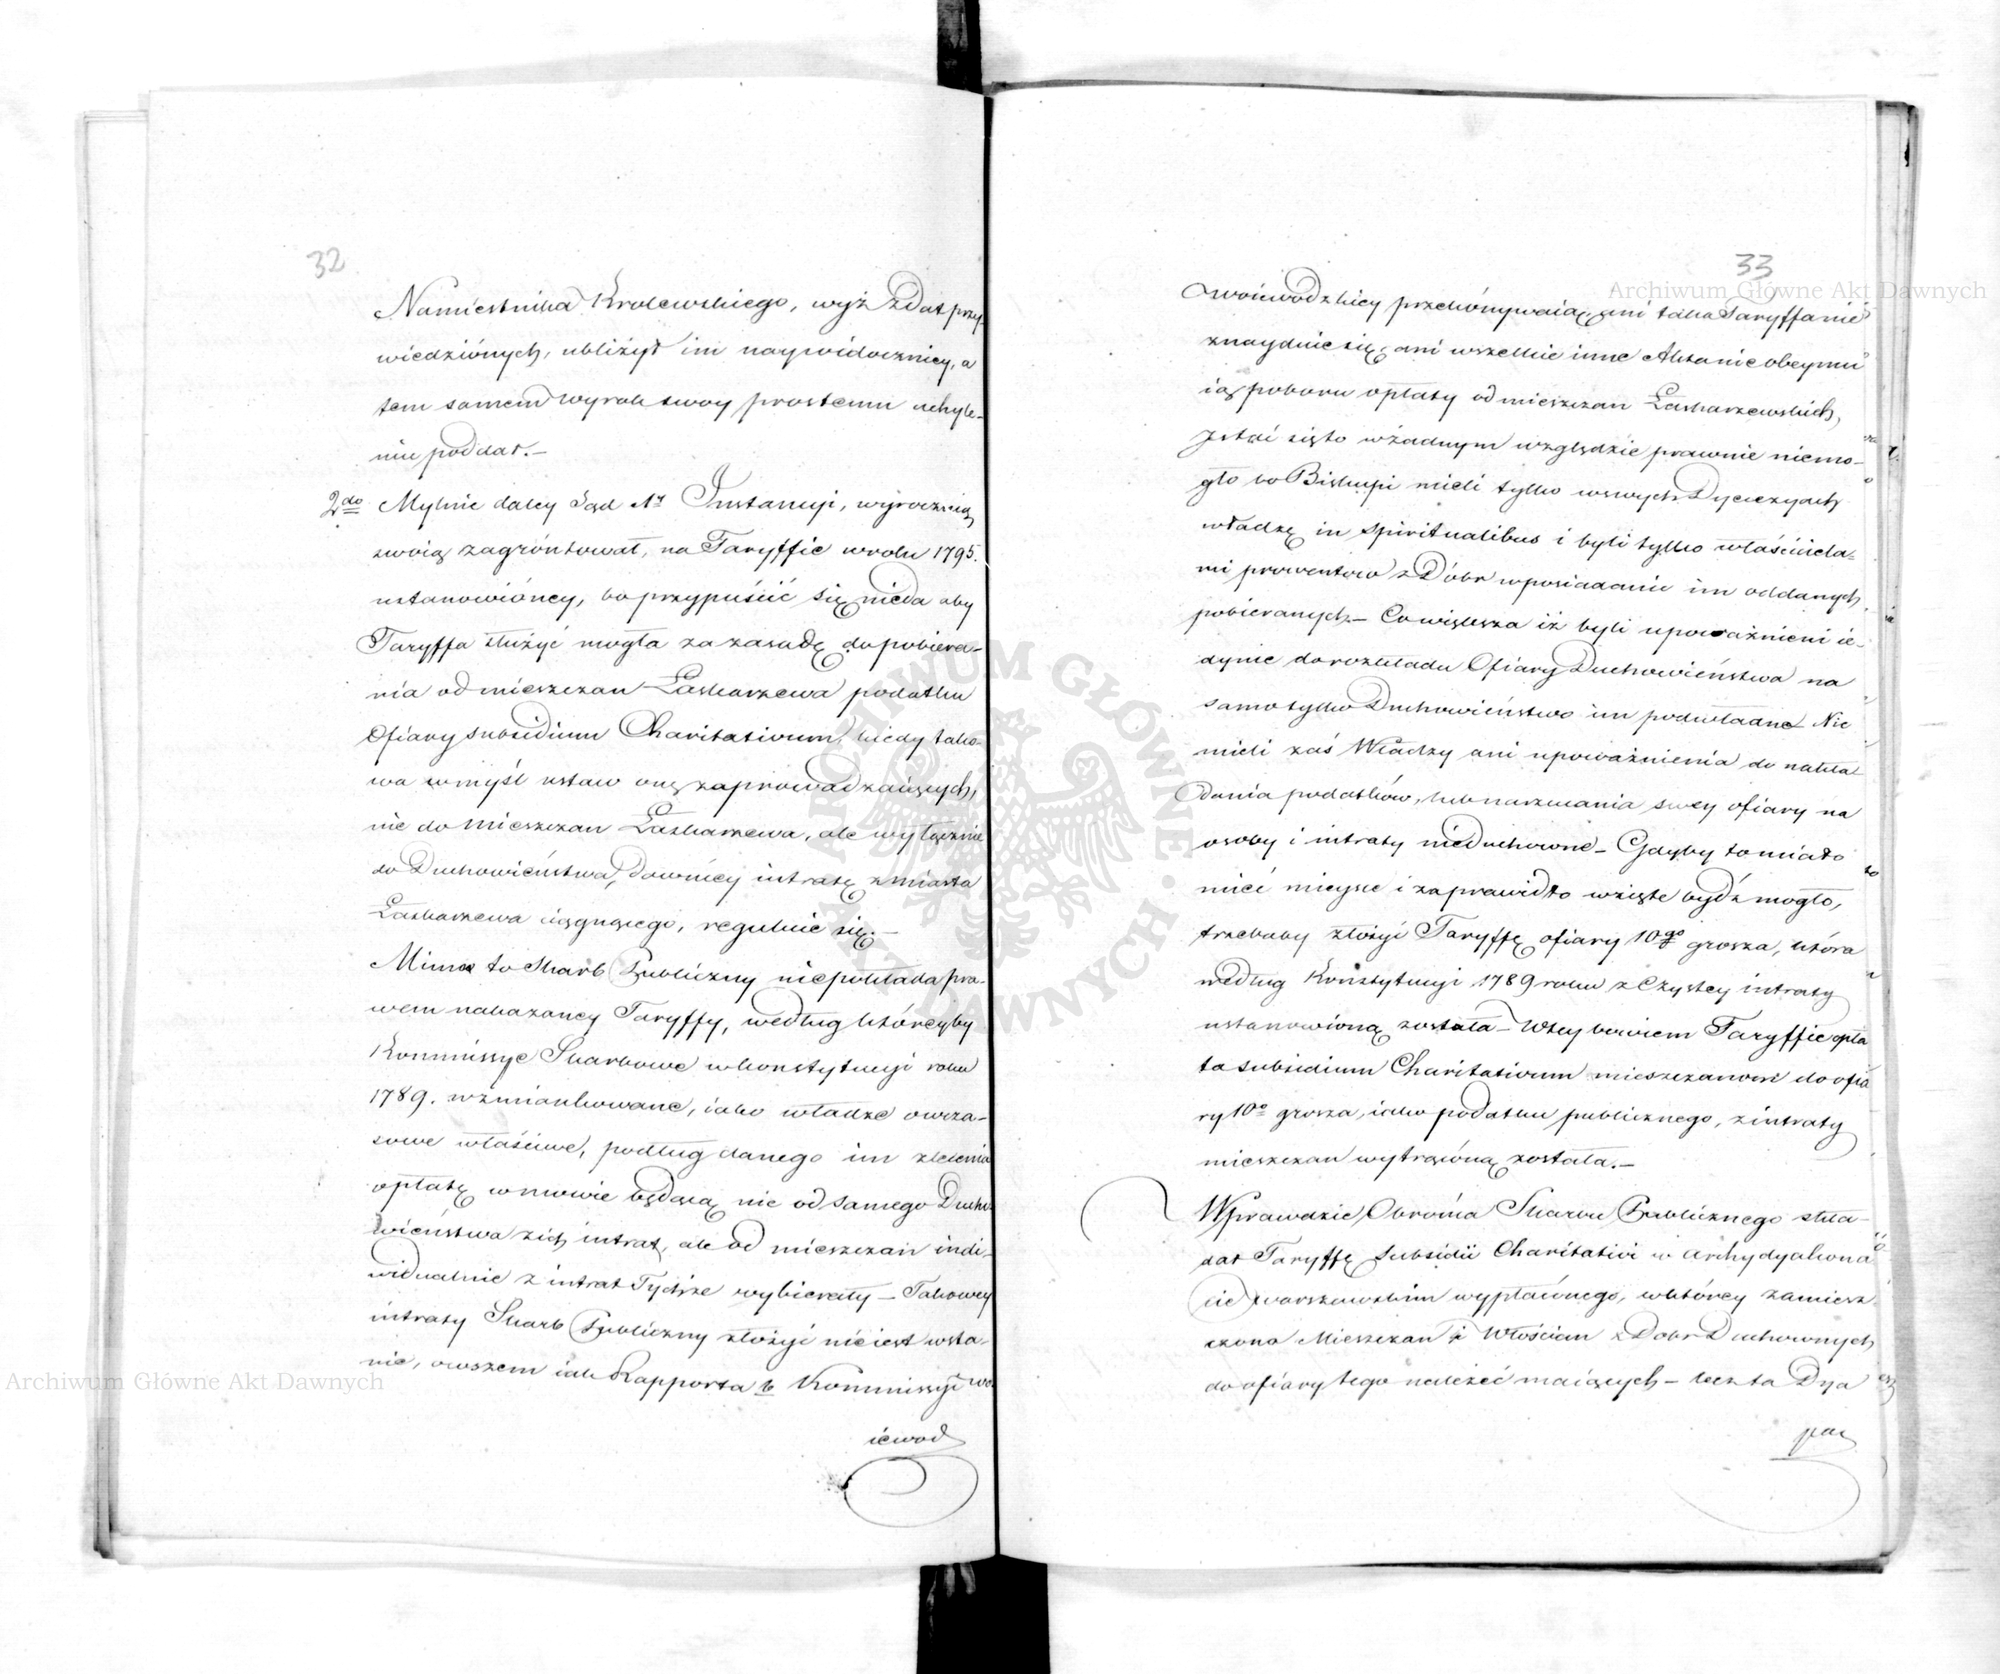 32
Namiestnika Krolewskiego, wyż z Dat przy-
wiedziónych, ubliżył im naywidoczniey, a
tem samem wyrok swoy prostemu uchyle-
niu poddał.—
2do Mylnie daley Sąd 1y Instancyi, wyrocznią
swoią zagróntował, na Taryffie w roku 1795.
ustanowióney, bo przypuścić się nie da aby
Taryffa służyć mogła za zasadę do pobiera-
nia od mieszczan Łaskarzewa podatku
Ofiary subsidium Charitativum, kiedy tako-
wa w myśl ustaw onę zaprowadzaiących,
nie do Mieszczan Łaskarzewa, ale wyłącznie
do Duchowieństwa, dawniey intratę z miasta
Łaskarzewa ciągnącego, reguluie się.—
Mimo to Skarb Publiczny niepokłada pra-
wem nakazaney Taryffy, według którey by
Kommissye Skarbowe w konstytucyi roku
1789. wzmiankowane, iako władze owcza-
sowe właściwe, podług danego im zlecenia
opłatę w mowie będącą nie od samego Ducho-
wieństwa z ich intrat, ale od mieszczan indi-
widualnie z intrat Tychże wybierały — Takowey
intraty Skarb Publiczny złożyć nie iest w sta-
nie, owszem iak Rapporta b Kommissyi Wo-
iewod
33
woiewodzkiey przekónywaią, ani taka Taryffa nie
znayduie się, ani wszelkie inne Akta nie obeymu
ią poboru opłaty od mieszczan Łaskarzewskich,
stać się to w żadnym względzie prawnie niemo-
gło bo Biskupi mieli tylko w swych Dyecezyach
władzę in spiritualibus i byli tylko właściciela-
mi prowentow z Dóbr w posiadanie im oddanych
pobieranych — Co większa iż byli upoważnieni ie-
dynie do rozkładu Ofiary Duchowieństwa na
samo tylko Duchowieństwo im podwładne Nie
mieli zaś Władzy ani upoważnienia do nakła
dania podatków, lub narzucania swey ofiary na
osoby i intraty nieduchowne — Gdyby to miało
mieć mieysce i za prawidło wzięte bydź mogło,
trzebaby złożyć Taryffę ofiary 10go grosza, która
według Konstytucyi 1789 roku z czystey intraty
ustanowioną została — W tey bowiem Taryffie opła
ta subsidium Charitativum mieszczanom do ofia
ry 10o grosza, iako podatku publicznego, z intraty
mieszczan wytrąconą została.—
Wprawdzie Obrońca Skarbu Publicznego skła-
dał Taryffę Subsidii Charitativi w Archydyakona
cie warszawskim wypławnego, w którey zamiesz
czono Mieszczan i Włościan z Dobr Duchownych
do ofiary tego należeć maiących — lecz ta Dya
pac
Archiwum Główne Akt Dawnych
Archiwum Główne Akt Dawnych
ARCHIWUM GŁÓWNE AKT DAWNYCH